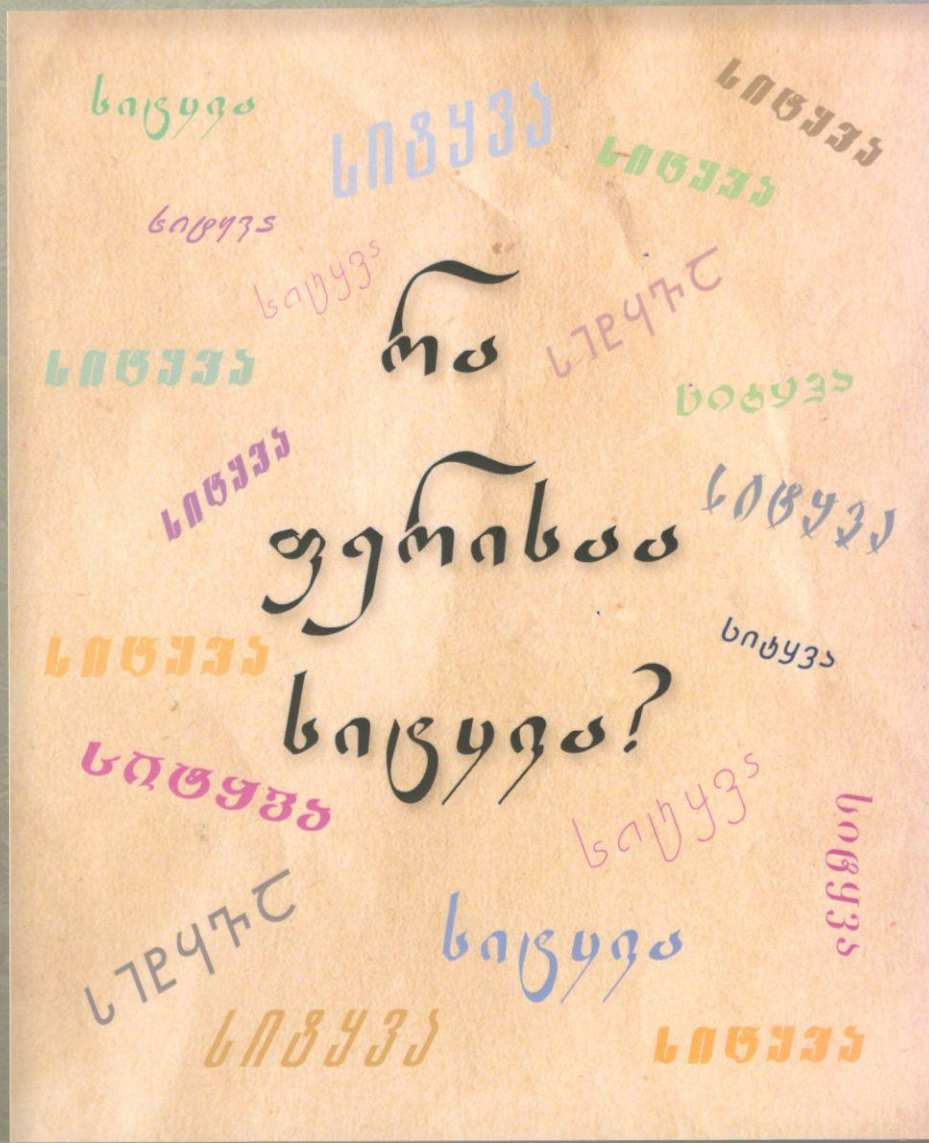 სიტყვა
სიტყვა
სიტყვა
სიტყვა
სიტყვა
სიტყვა
რა
სიტყვა
სიტყვა
სიტყვა
სიტყვა
სიტყვა
ფერისაა
სიტყვა
სიტყვა
სიტყვა?
სიტყვა
სიტყვა
სიტყვა
სიტყვა
სიტყვა
სიტყვა
სიტყვა